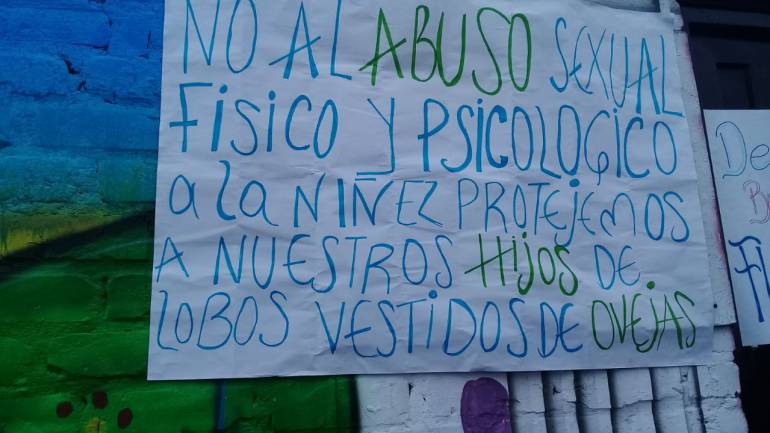 NO AL ABUSO SEXUAL
FISICO Y PSICOLOGICO
a la NIÑEZ PROTEJEMOS
A NUESTROS HIJOS DE
LOBOS VESTIDOS DE OVEJAS
De